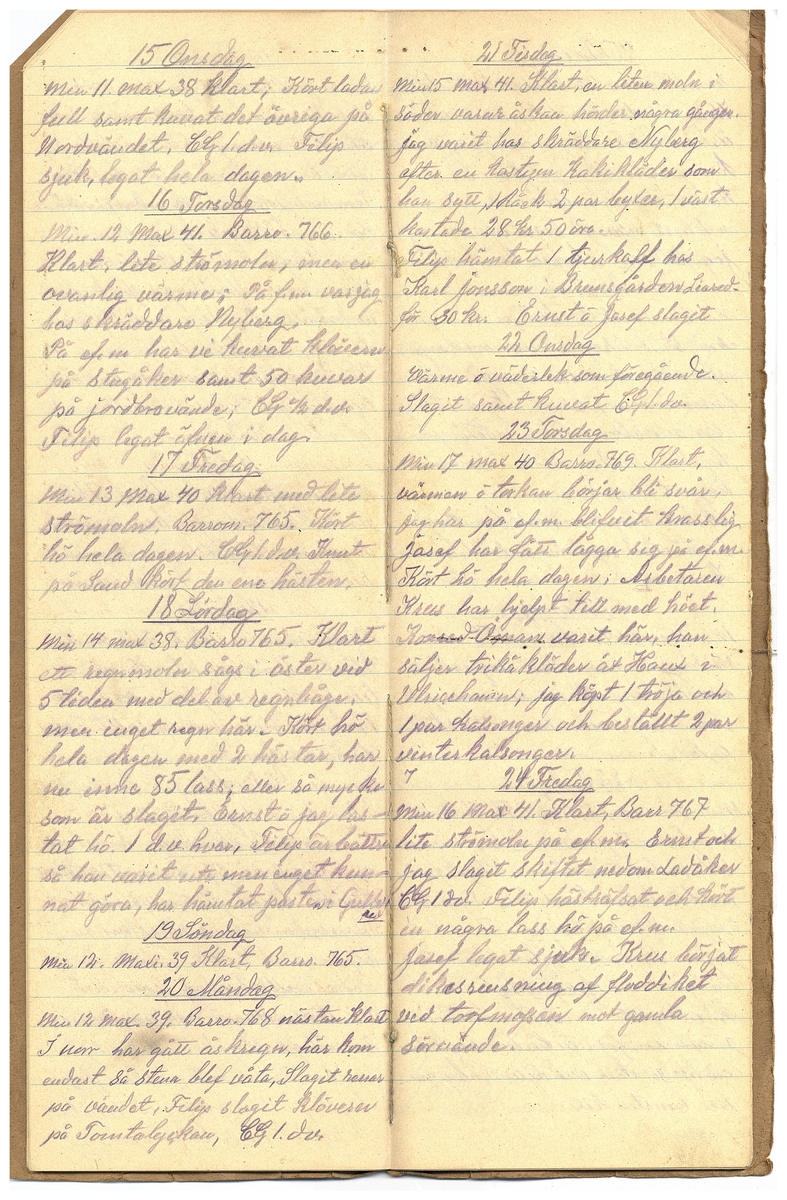 15 Onsdag
Min 11 max 38 klart; Kört ladan
full samt kuvat det övriga på
Nordvändet. CG 1. d.v. Filip
sjuk, legat hela dagen.
16 Torsdag
Min. 12 Max 41. Barro. 766.
Klart, lite strömoln, men en
ovanlig värme; På f.m var jag
hos skräddare Nyberg.
På ef.m har vi kuvat klövern
på stegåker samt 50 kuvar
på jordbrovände; CG ½ d.v.
Filip legat äfven i dag.
17 Fredag
Min 13 Max 40 klart med lite
strömoln. Barrom. 765. Kört
hö hela dagen. CG 1. d.v. Knut
på Sand kört den ena hästen.
18 Lördag
Min 14 max 38. Barro 765. Klart
ett regnmoln sågs i öster vid
5 tiden med del av regnbåge,
men inget regn här. Kört hö
hela dagen med 2 hästar, har
nu inne 85 lass, eller så mycke
som är slaget. Ernst ö jag las-
tat hö. 1 d.v hvar, Filip är bättre
så han varit ute men inget kun-
nat göra, har hämtat posten i
19 Söndag
Min 12. Maxi. 39 Klart, Barro. 765.
20 Måndag
Min 12 Max. 39. Barro. 768 nästan klart
I norr har gått åskregn, här kom
endast så stena blef våta, Slagit
på vändet, Filip slagit klövern
på Tomtalyckan, CG 1. dv.
21 Tisdag
Min 15 max 41. Klart, en liten moln i
söder varur åskan hördes några gånger.
Jag varit hos skräddare Nyberg
efter en kostym kakikläder som
han sytt, 1 Rock 2 par byxer, 1 väst
kostade 28 kr 50 öre.
Filip hämtat 1 tjurkalf hos
Karl Jonsson i Brunsgården Liared
för 30 kr. Ernst ö Josef slagit
22 Onsdag
Värme ö väderlek som föregående.
Slagit samt kuvat CG 1. dv.
23 Torsdag
Min 17 max 40 Barro. 769. Klart,
värmen ö torkan börjar bli svår,
jag har på ef.m. blifvit krasslig
Josef har fått lägga sig på ef.m.
Kört hö hela dagen; Arbetaren
Krus har hjelpt till med höet.
Konrad varit här, han
säljer trikåkläder åt Haux i
Ulricehamn; jag köpt 1 tröja och
1 par kalsonger och beställt 2 par
vinterkalsonger.
24 Fredag
Min 16 Max 41. Klart, Barr 767
lite strömoln på ef.m. Ernst och
jag slagit skiftet nedom Ladåker
CG 1 dv. Filip hästräfsat och kört
en några lass hö på ef.m.
Josef legat sjuk. Krus börjat
dikesrensning af floddiket
vid torfmossen mot gamla
sörvände.